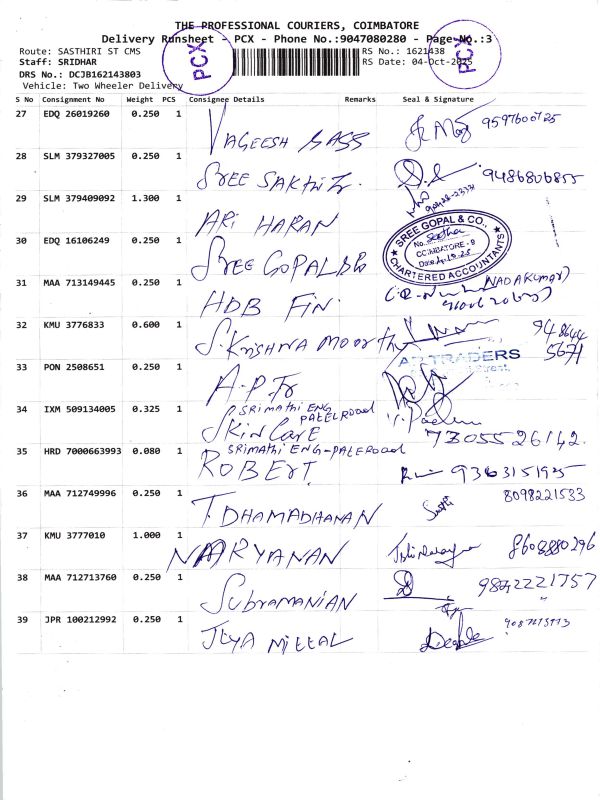 THE PROFESSIONAL COURIERS, COIMBATORE
Delivery Runsheet - PCX - Phone No.:9047080280 - Page No.:3
Route: SASTHIRI ST CMS RS No.: 1621438
Staff: SRIDHAR RS Date: 04-Oct-2025
DRS No.: DCJB162143803
Vehicle: Two Wheeler Delivery
PCX
PCX
S No Consignment No Weight PCS Consignee Details Remarks Seal & Signature
27 EDQ 26019260 0.250 1 VAGEESH 9597600725
28 SLM 379327005 0.250 1 SREE SAKTHI 9486806855
29 SLM 379409092 1.300 1 ARI HARAN
30 EDQ 16106249 0.250 1 SREE GOPAL
SREE GOPAL & CO.,
COIMBATORE - 9
CHARTERED ACCOUNTANTS
31 MAA 713149445 0.250 1 HDB FIN.
32 KMU 3776833 0.600 1 S. KRISHNA MOORTHY 948644
5671
33 PON 2508651 0.250 1 A.P.Tr
AP TRADERS
34 IXM 509134005 0.325 1 SRIMATHI ENG
PATEL ROAD
SKIN CARE 7305526142.
35 HRD 7000663993 0.080 1 SRIMATHI ENG-PATEL ROAD
ROBERT 9363151925
36 MAA 712749996 0.250 1 T. DHAMADHANAN 8098221533
37 KMU 3777010 1.000 1 NAARYANAN 8608880296
38 MAA 712713760 0.250 1 SUBRAMANIAN 9842221757
39 JPR 100212992 0.250 1 JEYA MITTAL